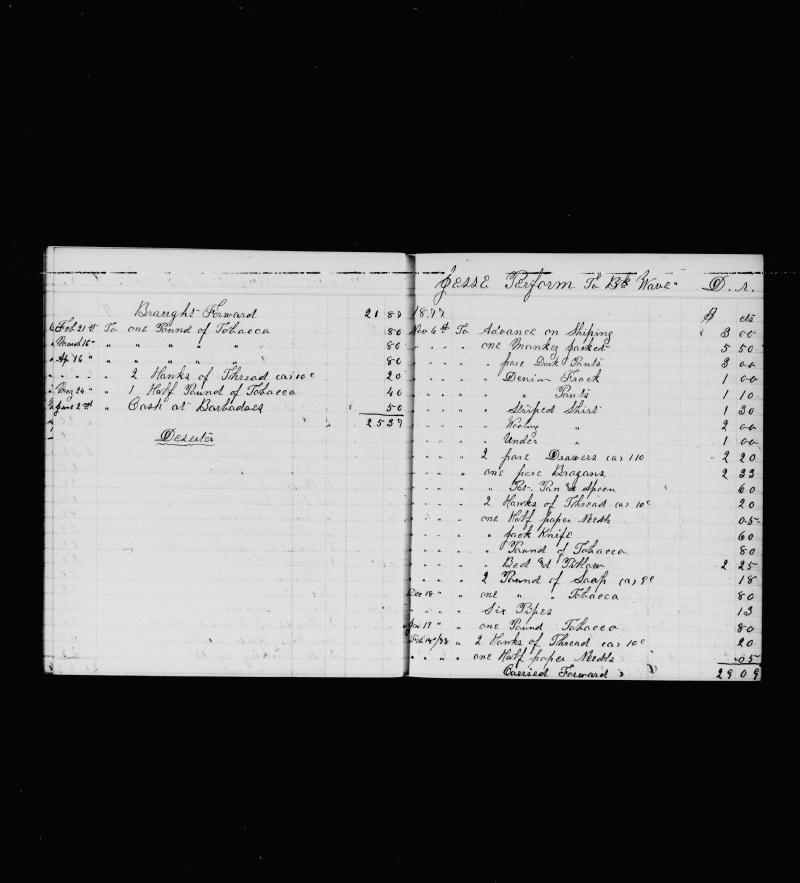 Braught Forward 21 87
Feb 21st To one Pound of Tobacco 80
" March 16 " " " " " " 80
" Ap 16 " " " " " " 80
" " " " 2 Hanks of Thread (a) 10c 20
" May 24 " " 1 Half Pound of Tobacco 40
" June 2nd " Cash at Barbadoes 50
25 37
Deserter
Jesse Perform To Bk Wave Dr.
1877 $ cts
Nov 6th To Advance on Shiping 3 00
" " " " one Monkey Jacked 5 50
" " " " " pare Dark Pants 3 00
" " " " " Denim Frock 1 00
" " " " " " Pants 1 10
" " " " " Striped Shirt 1 30
" " " " " Wooling " 2 00
" " " " " Under " 1 00
" " " " 2 pare Drawers (a) 110 2 20
" " " " one pare Brogans 2 33
" " " " " Pot, Pan & Spoon 60
" " " " 2 Hanks of Thread (a) 10c 20
" " " " one Half paper Needls 05
" " " " " Jack Knife 60
" " " " " Pound of Tobacco 80
" " " " " Bed and Pillow 2 25
" " " " 2 Pound of Soap (a) 9c 18
Dec 18 " " one " " Tobacco 80
" " " " Six Pipes 13
Jan 19 " " one Pound Tobacco 80
Feb 14/78 " 2 Hanks of Thread (a) 10c 20
" " " " one Half paper Needls 05
Carried Forward 29 09